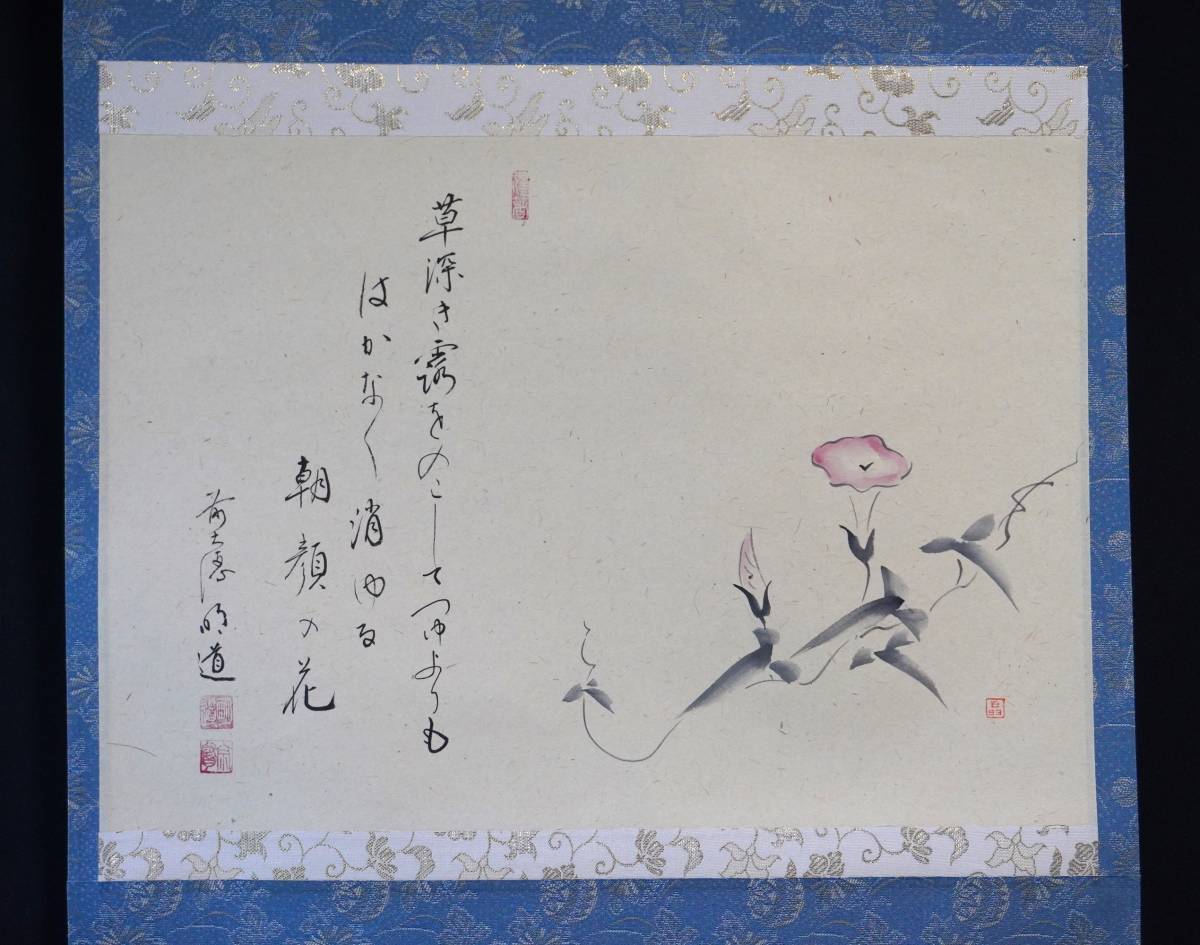 草深き露をのこしてつゆよりも
はかなく消ゆる
朝顔の花
前大徳 明道